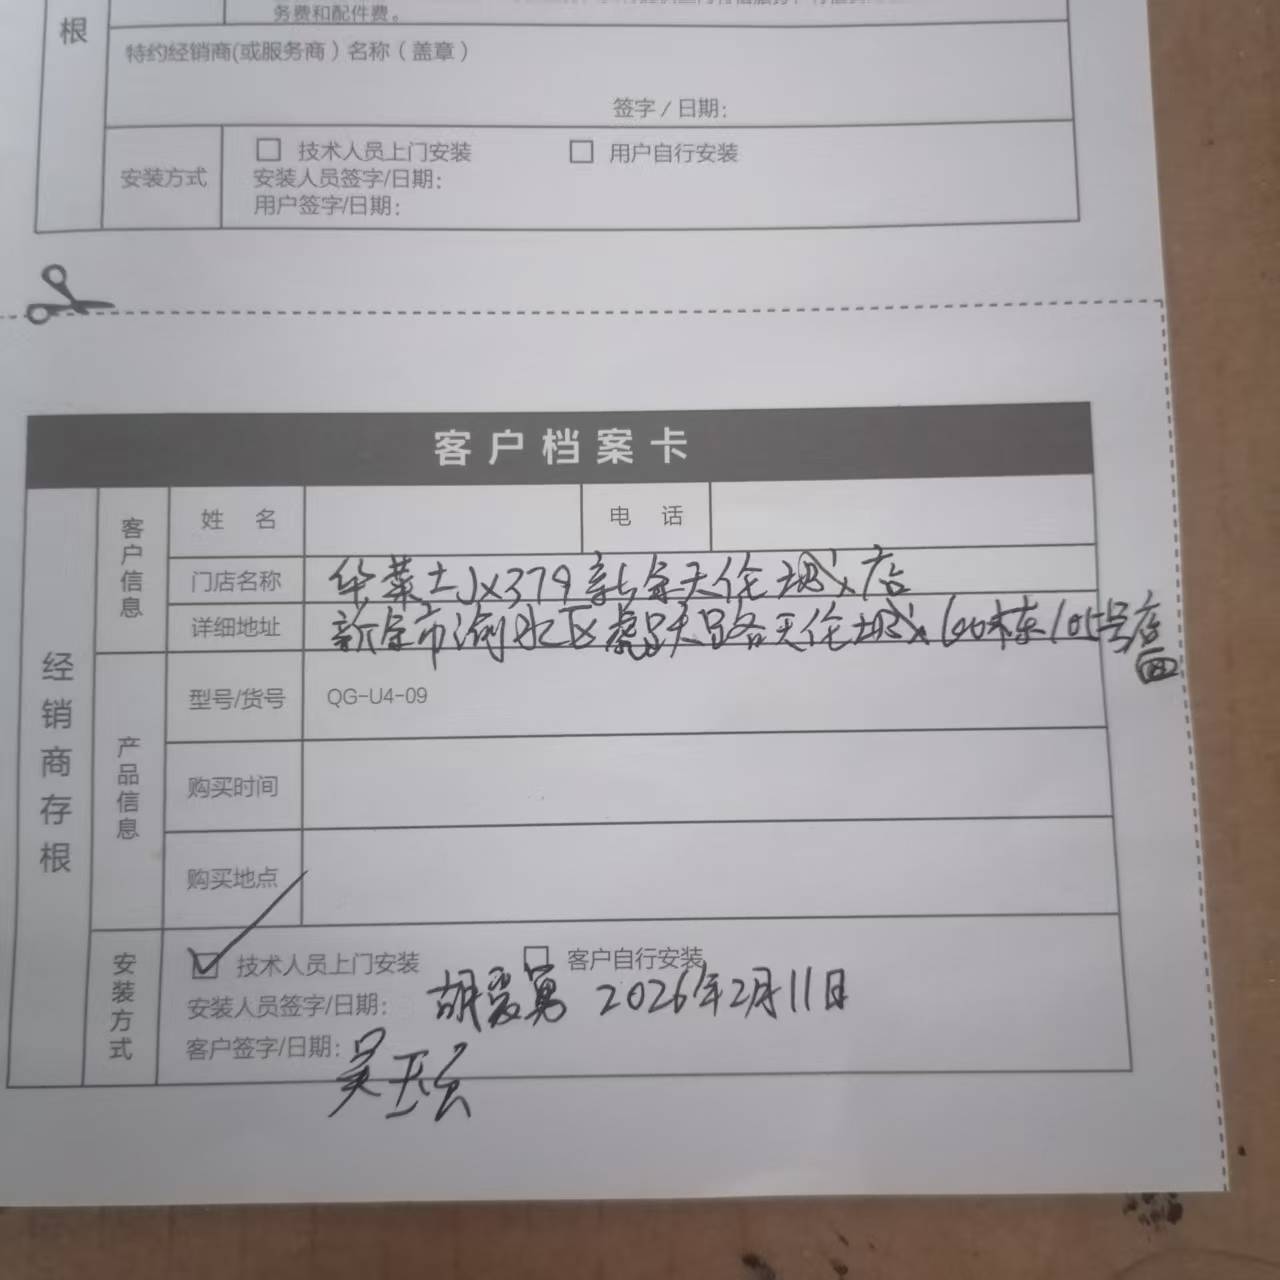 务费和配件费。
根
特约经销商(或服务商)名称(盖章)
签字/日期:
安装方式
技术人员上门安装 用户自行安装
安装人员签字/日期:
用户签字/日期:
客户档案卡
经销商存根
客户信息
姓 名
电 话
门店名称 华莱士JX379新余天伦城店
详细地址 新余市渝水区 天伦城 栋105号店面
产品信息
型号/货号 QG-U4-09
购买时间
购买地点
安装方式
技术人员上门安装 客户自行安装
安装人员签字/日期: 胡爱勇 2026年2月11日
客户签字/日期: 吴玉